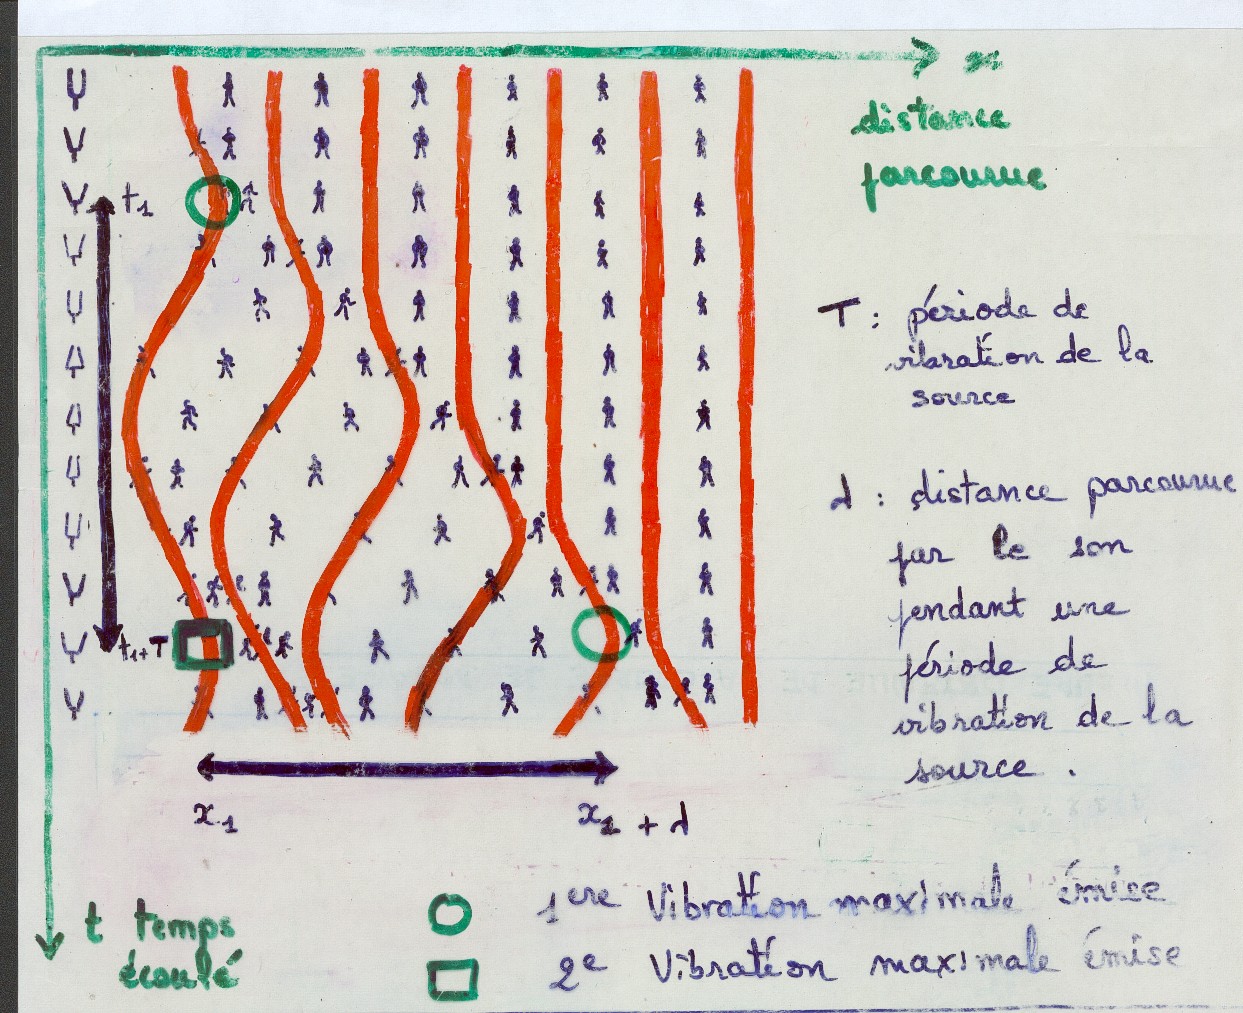 x
distance
parcourue
t1
T : période de
vibration de la
source
d : distance parcourue
par le son
pendant une
période de
vibration de la
source .
t1+T
x1
x1 + d
t temps
écoulé
1ere Vibration maximale émise
2e Vibration maximale émise